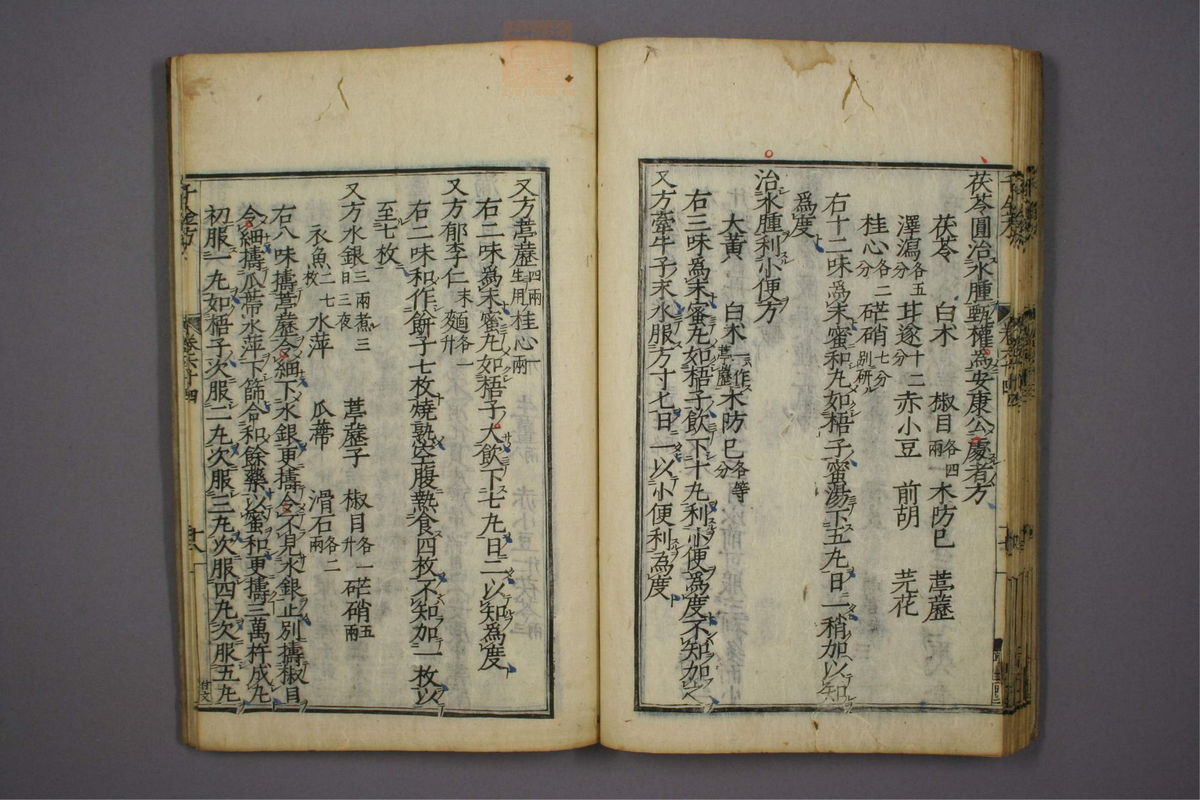 茯苓圓治水腫甄權為安康公處者方
茯苓 白朮 椒目各四兩 木防已 葶藶
澤瀉各五分 甘遂十二分 赤小豆 前胡 芫花
桂心各二分 硭硝七分別研
右十二味為末蜜和丸如梧子蜜湯下五丸日一稍加以知
為度
治水腫利小便方
大黃 白朮一作葶藶 木防已各等分
右三味為末蜜丸如梧子飲下十丸利小便為度不知加之
又方牽牛子末水服方寸匕日一以小便利為度
又方葶藶四兩生用桂心一兩
右二味為末蜜丸如梧子大飲下七丸日二以知為度
又方郁李仁末麵各一升
右二味和作餅子七枚燒熟空腹熱食四枚不知加一枚以
至七枚
又方水銀三兩煮三日三夜 葶藶子 椒目各一升 硭硝五兩
衣魚二七枚 水萍 瓜蔕 滑石各二兩
右八味擣葶藶令細下水銀更擣令不見水銀止別擣椒目
令細擣瓜蔕水萍下篩合和餘藥以蜜和更擣三萬杵成丸
初服一丸如梧子次服二丸次服三丸次服四丸次服五丸
千金方 卷六十四